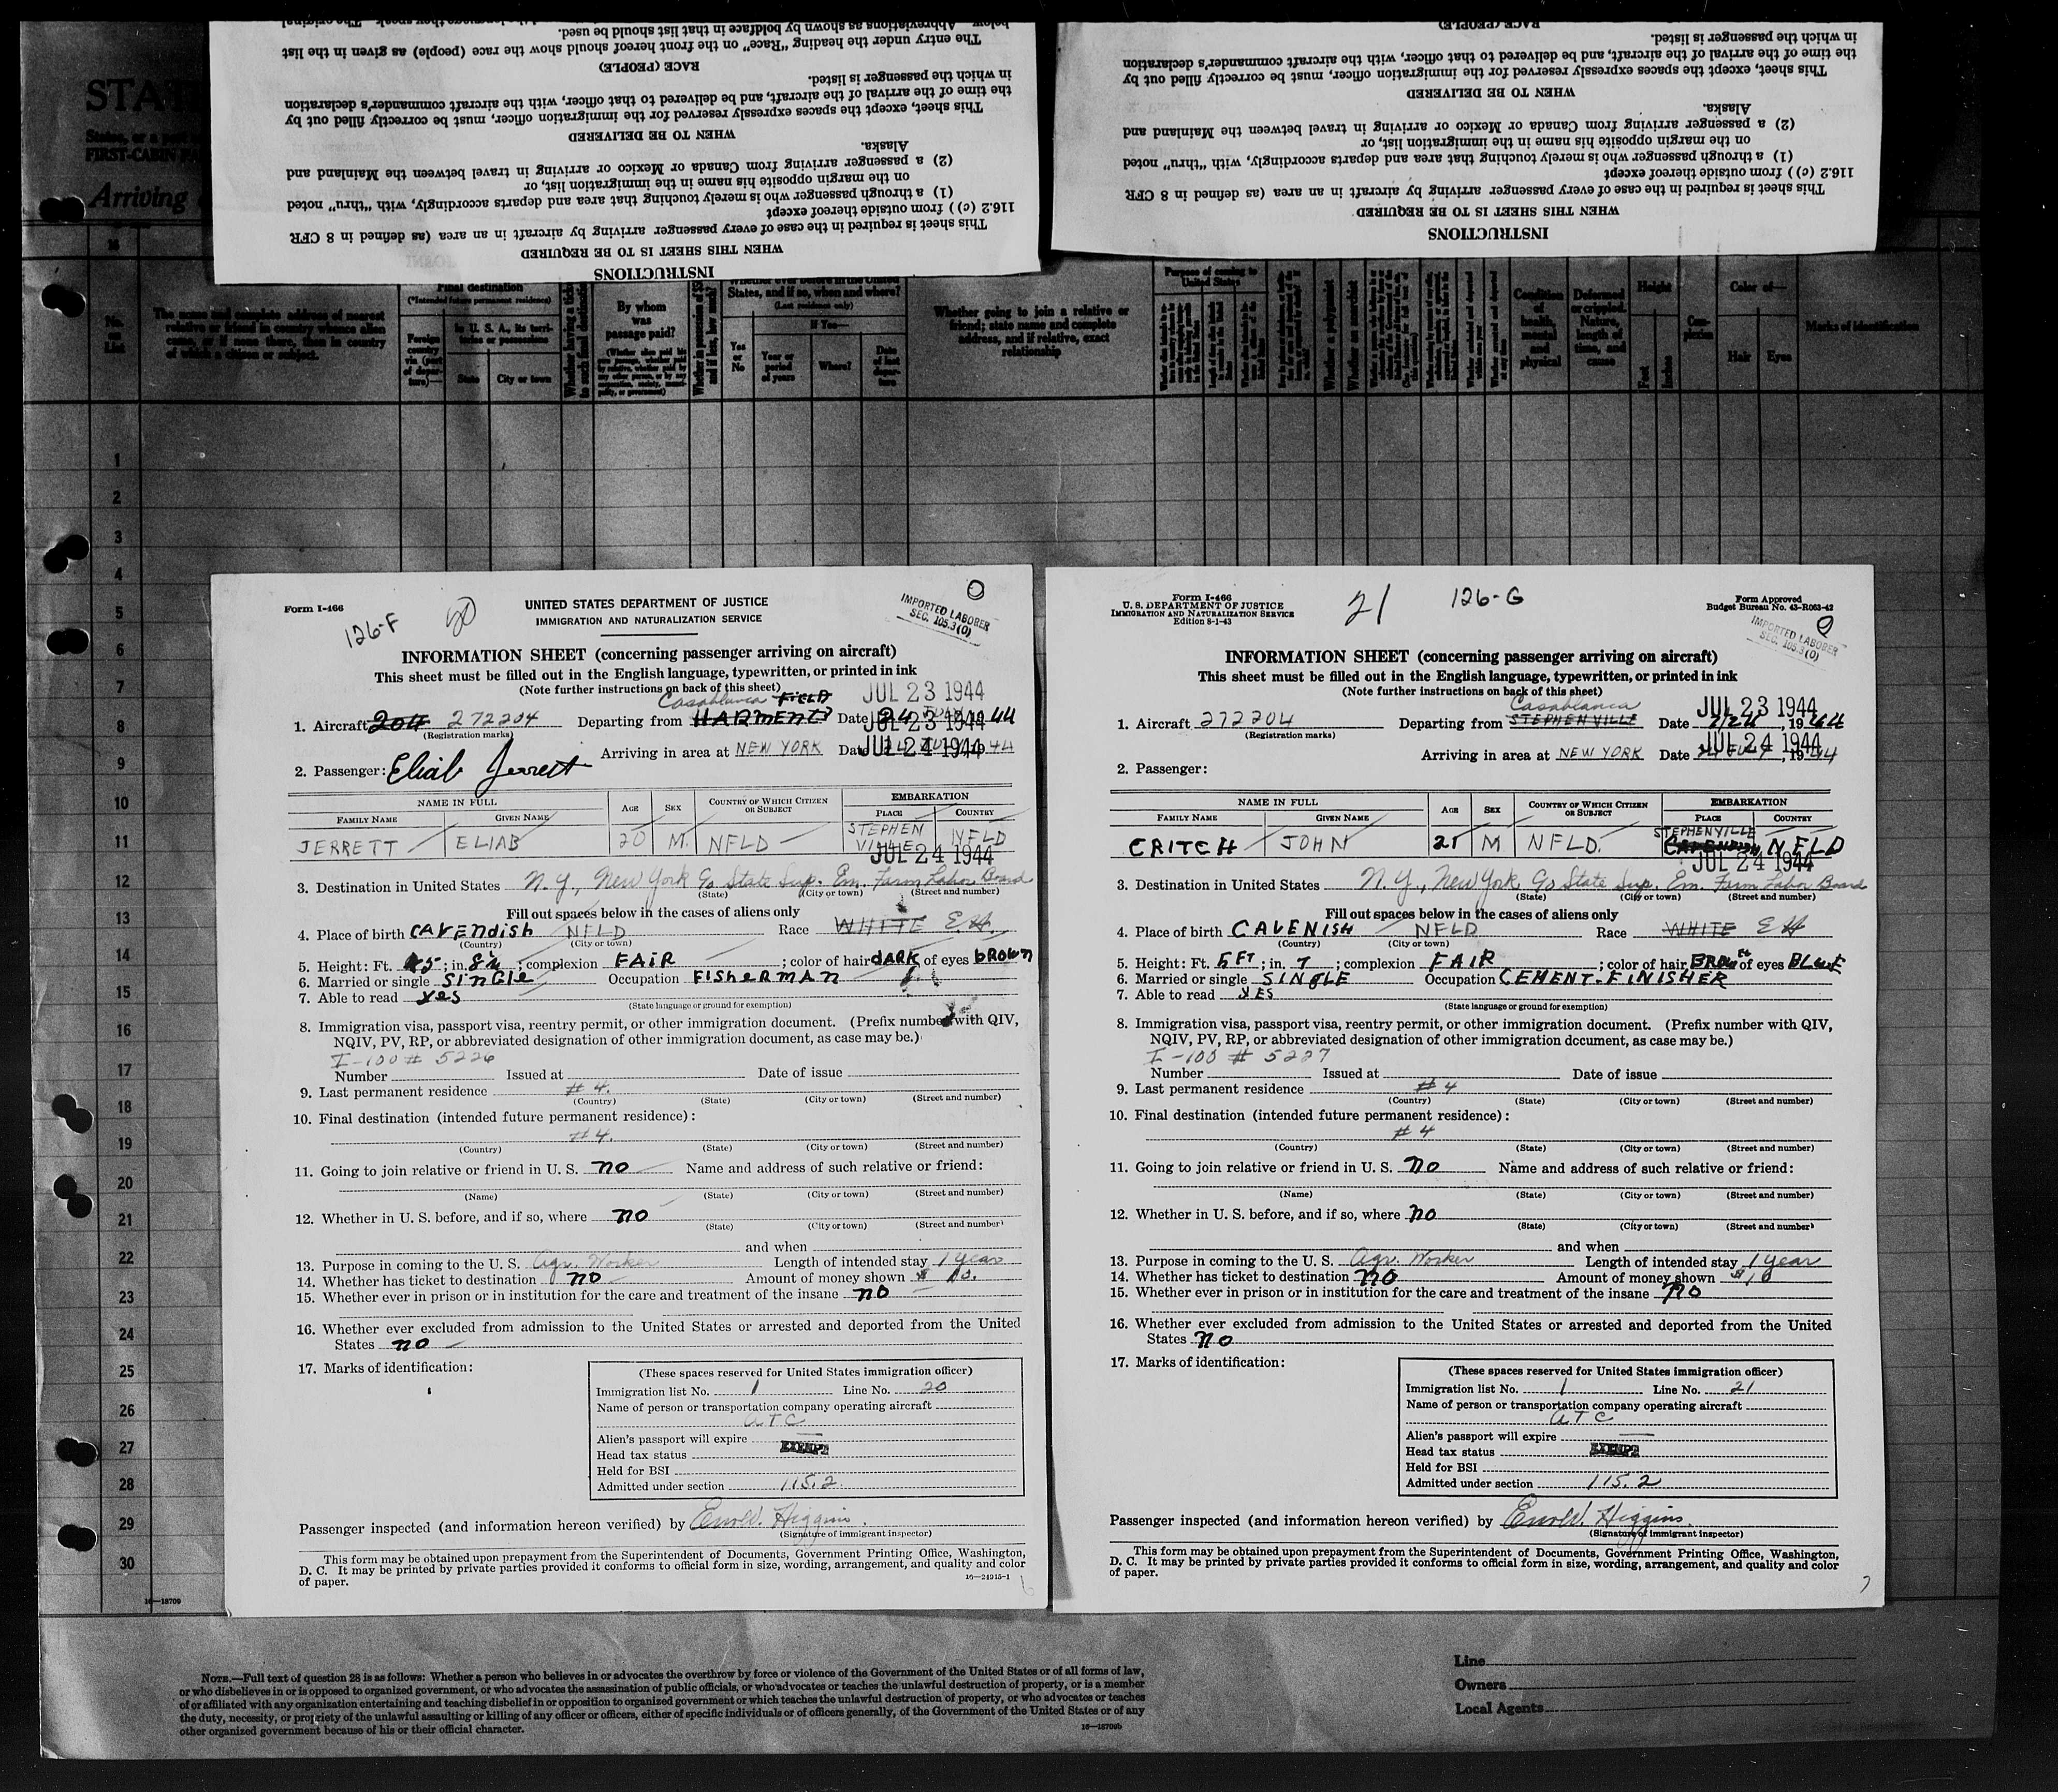 INSTRUCTIONS
WHEN THIS SHEET IS TO BE REQUIRED
This sheet is required in the case of every passenger arriving by aircraft in an area (as defined in 8 CFR
116.2 (c)) from outside thereof except
(1) a through passenger who is merely touching that area and departs accordingly, with "thru" noted
on the margin opposite his name in the immigration list, or
(2) a passenger arriving from Canada or Mexico or arriving in travel between the Mainland and
Alaska.
WHEN TO BE DELIVERED
This sheet, except the spaces expressly reserved for the immigration officer, must be correctly filled out by
the time of the arrival of the aircraft, and be delivered to that officer, with the aircraft commander's declaration
in which the passenger is listed.
RACE (PEOPLE)
The entry under the heading "Race" on the front hereof should show the race (people) as given in the list
below. Abbreviations as shown by boldface in that list should be used.
INSTRUCTIONS
WHEN THIS SHEET IS TO BE REQUIRED
This sheet is required in the case of every passenger arriving by aircraft in an area (as defined in 8 CFR
116.2 (c)) from outside thereof except
(1) a through passenger who is merely touching that area and departs accordingly, with "thru" noted
on the margin opposite his name in the immigration list, or
(2) a passenger arriving from Canada or Mexico or arriving in travel between the Mainland and
Alaska.
WHEN TO BE DELIVERED
This sheet, except the spaces expressly reserved for the immigration officer, must be correctly filled out by
the time of the arrival of the aircraft, and be delivered to that officer, with the aircraft commander's declaration
in which the passenger is listed.
RACE (PEOPLE)
STAT
States, or a
FIRST-CABIN PA
Arriving
No. on List
The name and complete address of nearest relative or friend in country whence alien came, or if none there, then in country of which a citizen or subject.
Final destination
(*Intended future permanent residence)
Foreign country via (port of departure)—
In U. S. A., its territories or possessions
State
City or town
By whom was passage paid?
States, and if so, when and where?
(Last residence only)
Yes or No
If Yes—
Year or period of years
Where?
Date of last departure
Whether going to join a relative or friend; state name and complete address, and if relative, exact relationship
Purpose of coming to United States
Whether a polygamist
Whether an anarchist
Condition of health, mental and physical
Deformed or crippled. Nature, length of time, and cause
Height
Feet
Inches
Complexion
Color of—
Hair
Eyes
Marks of identification
1
2
3
4
5
6
7
8
9
10
11
12
13
14
15
16
17
18
19
20
21
22
23
24
25
26
27
28
29
30
16—18709
Form I-466
126-F
20
UNITED STATES DEPARTMENT OF JUSTICE
IMMIGRATION AND NATURALIZATION SERVICE
IMPORTED LABORER
SEC. 105.3(0)
INFORMATION SHEET (concerning passenger arriving on aircraft)
This sheet must be filled out in the English language, typewritten, or printed in ink
(Note further instructions on back of this sheet)
JUL 23 1944
Casablanca FIELD
1. Aircraft 204 272204 Departing from HARMENT Date 24 JULY 1944
JUL 23 1944
(Registration marks)
Arriving in area at NEW YORK Date 24 JULY 1944
JUL 24 1944
2. Passenger: Eliab Jerrett
NAME IN FULL AGE SEX COUNTRY OF WHICH CITIZEN OR SUBJECT EMBARKATION
FAMILY NAME GIVEN NAME PLACE COUNTRY
JERRETT ELIAB 20 M NFLD STEPHEN VILLE NFLD
JUL 24 1944
3. Destination in United States N.Y., New York % State Sup. Em. Farm Labor Board
(State) (City or town) (Street and number)
Fill out spaces below in the cases of aliens only
4. Place of birth CAVENDISH NFLD Race WHITE E.H.
(Country) (City or town)
5. Height: Ft. 5; in. 8½; complexion FAIR; color of hair DARK of eyes BROWN
6. Married or single SINGLE Occupation FISHERMAN
7. Able to read yes
(State language or ground for exemption)
8. Immigration visa, passport visa, reentry permit, or other immigration document. (Prefix number with QIV,
NQIV, PV, RP, or abbreviated designation of other immigration document, as case may be.)
I-100 # 5226
Number Issued at Date of issue
9. Last permanent residence # 4.
(Country) (State) (City or town) (Street and number)
10. Final destination (intended future permanent residence):
# 4.
(Country) (State) (City or town) (Street and number)
11. Going to join relative or friend in U. S. no Name and address of such relative or friend:
(Name) (State) (City or town) (Street and number)
12. Whether in U. S. before, and if so, where no
(State) (City or town) (Street and number)
and when
13. Purpose in coming to the U. S. Agr. Worker Length of intended stay 1 year
14. Whether has ticket to destination no Amount of money shown $ 10.
15. Whether ever in prison or in institution for the care and treatment of the insane no
16. Whether ever excluded from admission to the United States or arrested and deported from the United
States no
17. Marks of identification:
(These spaces reserved for United States immigration officer)
Immigration list No. 1 Line No. 20
Name of person or transportation company operating aircraft
ATC
Alien's passport will expire —
Head tax status EXEMPT
Held for BSI
Admitted under section 115.2
Passenger inspected (and information hereon verified) by Errol W. Higgins
(Signature of immigrant inspector)
This form may be obtained upon prepayment from the Superintendent of Documents, Government Printing Office, Washington,
D. C. It may be printed by private parties provided it conforms to official form in size, wording, arrangement, and quality and color
of paper.
16—21915-1
Form I-466
U. S. DEPARTMENT OF JUSTICE
IMMIGRATION AND NATURALIZATION SERVICE
Edition 8-1-43
21
126-G
Form Approved
Budget Bureau No. 43-R063-42
IMPORTED LABORER
SEC. 105.3(0)
INFORMATION SHEET (concerning passenger arriving on aircraft)
This sheet must be filled out in the English language, typewritten, or printed in ink
(Note further instructions on back of this sheet)
Casablanca JUL 23 1944
1. Aircraft 272204 Departing from STEPHENVILLE Date 7/24, 1944
(Registration marks)
Arriving in area at NEW YORK Date 24 JULY, 1944
JUL 24 1944
2. Passenger:
NAME IN FULL AGE SEX COUNTRY OF WHICH CITIZEN OR SUBJECT EMBARKATION
FAMILY NAME GIVEN NAME PLACE COUNTRY
CRITCH JOHN 21 M NFLD. STEPHENVILLE NFLD
JUL 24 1944
3. Destination in United States N.Y., New York % State Sup. Em. Farm Labor Board
(State) (City or town) (Street and number)
Fill out spaces below in the cases of aliens only
4. Place of birth CAVENISH NFLD Race WHITE EH
(Country) (City or town)
5. Height: Ft. 5 FT; in. 7; complexion FAIR; color of hair BROWN of eyes BLUE
6. Married or single SINGLE Occupation CEMENT-FINISHER
7. Able to read YES
(State language or ground for exemption)
8. Immigration visa, passport visa, reentry permit, or other immigration document. (Prefix number with QIV,
NQIV, PV, RP, or abbreviated designation of other immigration document, as case may be.)
I-100 # 5227
Number Issued at Date of issue
9. Last permanent residence # 4
(Country) (State) (City or town) (Street and number)
10. Final destination (intended future permanent residence):
# 4
(Country) (State) (City or town) (Street and number)
11. Going to join relative or friend in U. S. no Name and address of such relative or friend:
(Name) (State) (City or town) (Street and number)
12. Whether in U. S. before, and if so, where no
(State) (City or town) (Street and number)
and when
13. Purpose in coming to the U. S. Agr. Worker Length of intended stay 1 year
14. Whether has ticket to destination no Amount of money shown $10
15. Whether ever in prison or in institution for the care and treatment of the insane no
16. Whether ever excluded from admission to the United States or arrested and deported from the United
States no
17. Marks of identification:
(These spaces reserved for United States immigration officer)
Immigration list No. 1 Line No. 21
Name of person or transportation company operating aircraft
ATC
Alien's passport will expire —
Head tax status EXEMPT
Held for BSI
Admitted under section 115.2
Passenger inspected (and information hereon verified) by Errol W. Higgins
(Signature of immigrant inspector)
This form may be obtained upon prepayment from the Superintendent of Documents, Government Printing Office, Washington,
D. C. It may be printed by private parties provided it conforms to official form in size, wording, arrangement, and quality and color
of paper.
7
NOTE.—Full text of question 28 is as follows: Whether a person who believes in or advocates the overthrow by force or violence of the Government of the United States or of all forms of law,
or who disbelieves in or is opposed to organized government, or who advocates the assassination of public officials, or who advocates or teaches the unlawful destruction of property, or is a member
of or affiliated with any organization entertaining and teaching disbelief in or opposition to organized government or which teaches the unlawful destruction of property, or who advocates or teaches
the duty, necessity, or propriety of the unlawful assaulting or killing of any officer or officers, either of specific individuals or of officers generally, of the Government of the United States or of any
other organized government because of his or their official character.
16—18709b
Line
Owners
Local Agents